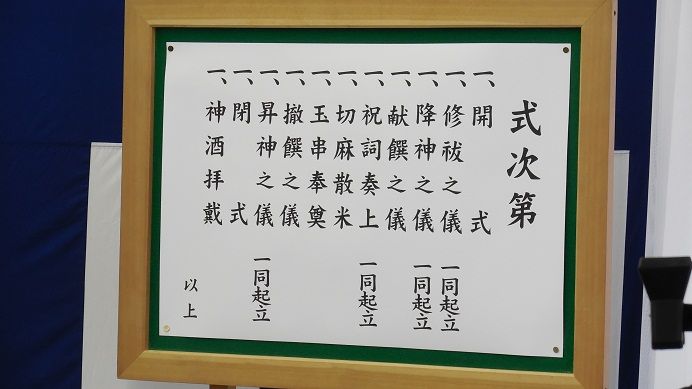 式次第
一、開式
一、修祓之儀 一同起立
一、降神之儀 一同起立
一、献饌之儀
一、祝詞奏上 一同起立
一、切麻散米
一、玉串奉奠
一、撤饌之儀
一、昇神之儀 一同起立
一、閉式
一、神酒拝戴
以上